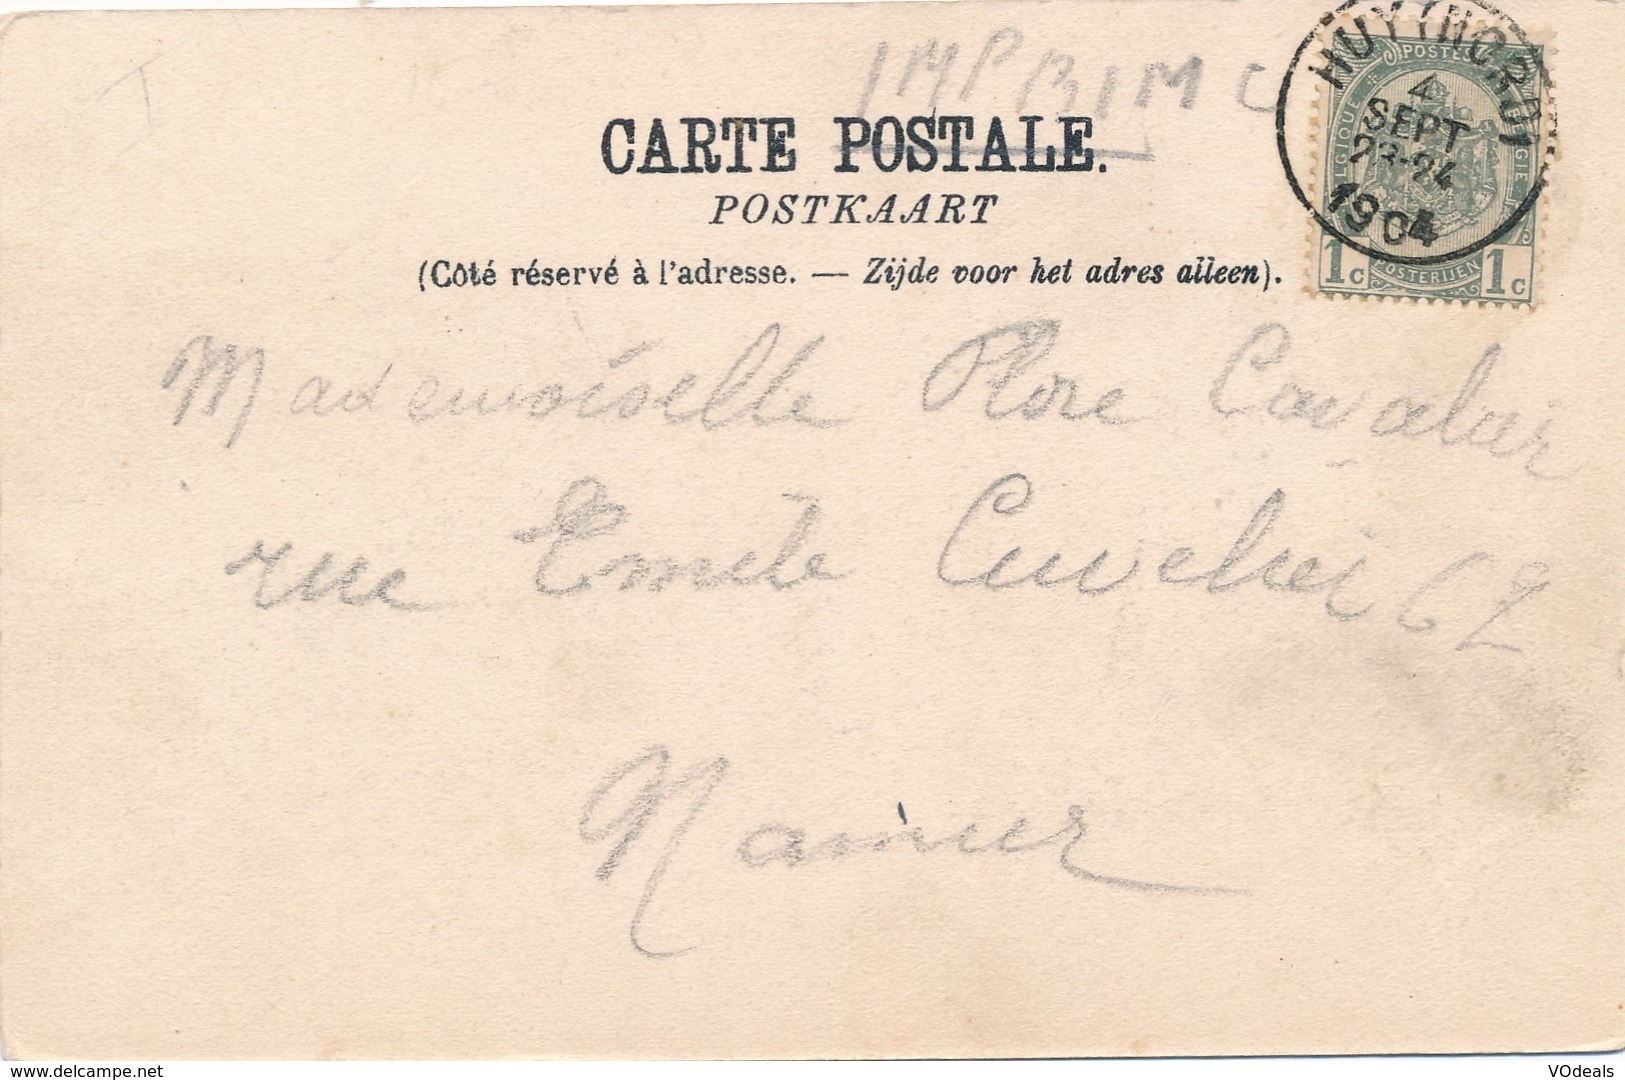 IMPRIMC
CARTE POSTALE.
POSTKAART
(Côté réservé à l'adresse. — Zijde voor het adres alleen).
HUY (NORD)
4
SEPT
23-24
1904
POSTES
BELGIQUE
BELGIE
1c POSTERIJEN 1c
Mademoiselle Flore Cavalier
rue Emile Cuvelier 62
Namur
www.delcampe.net
VOdeals